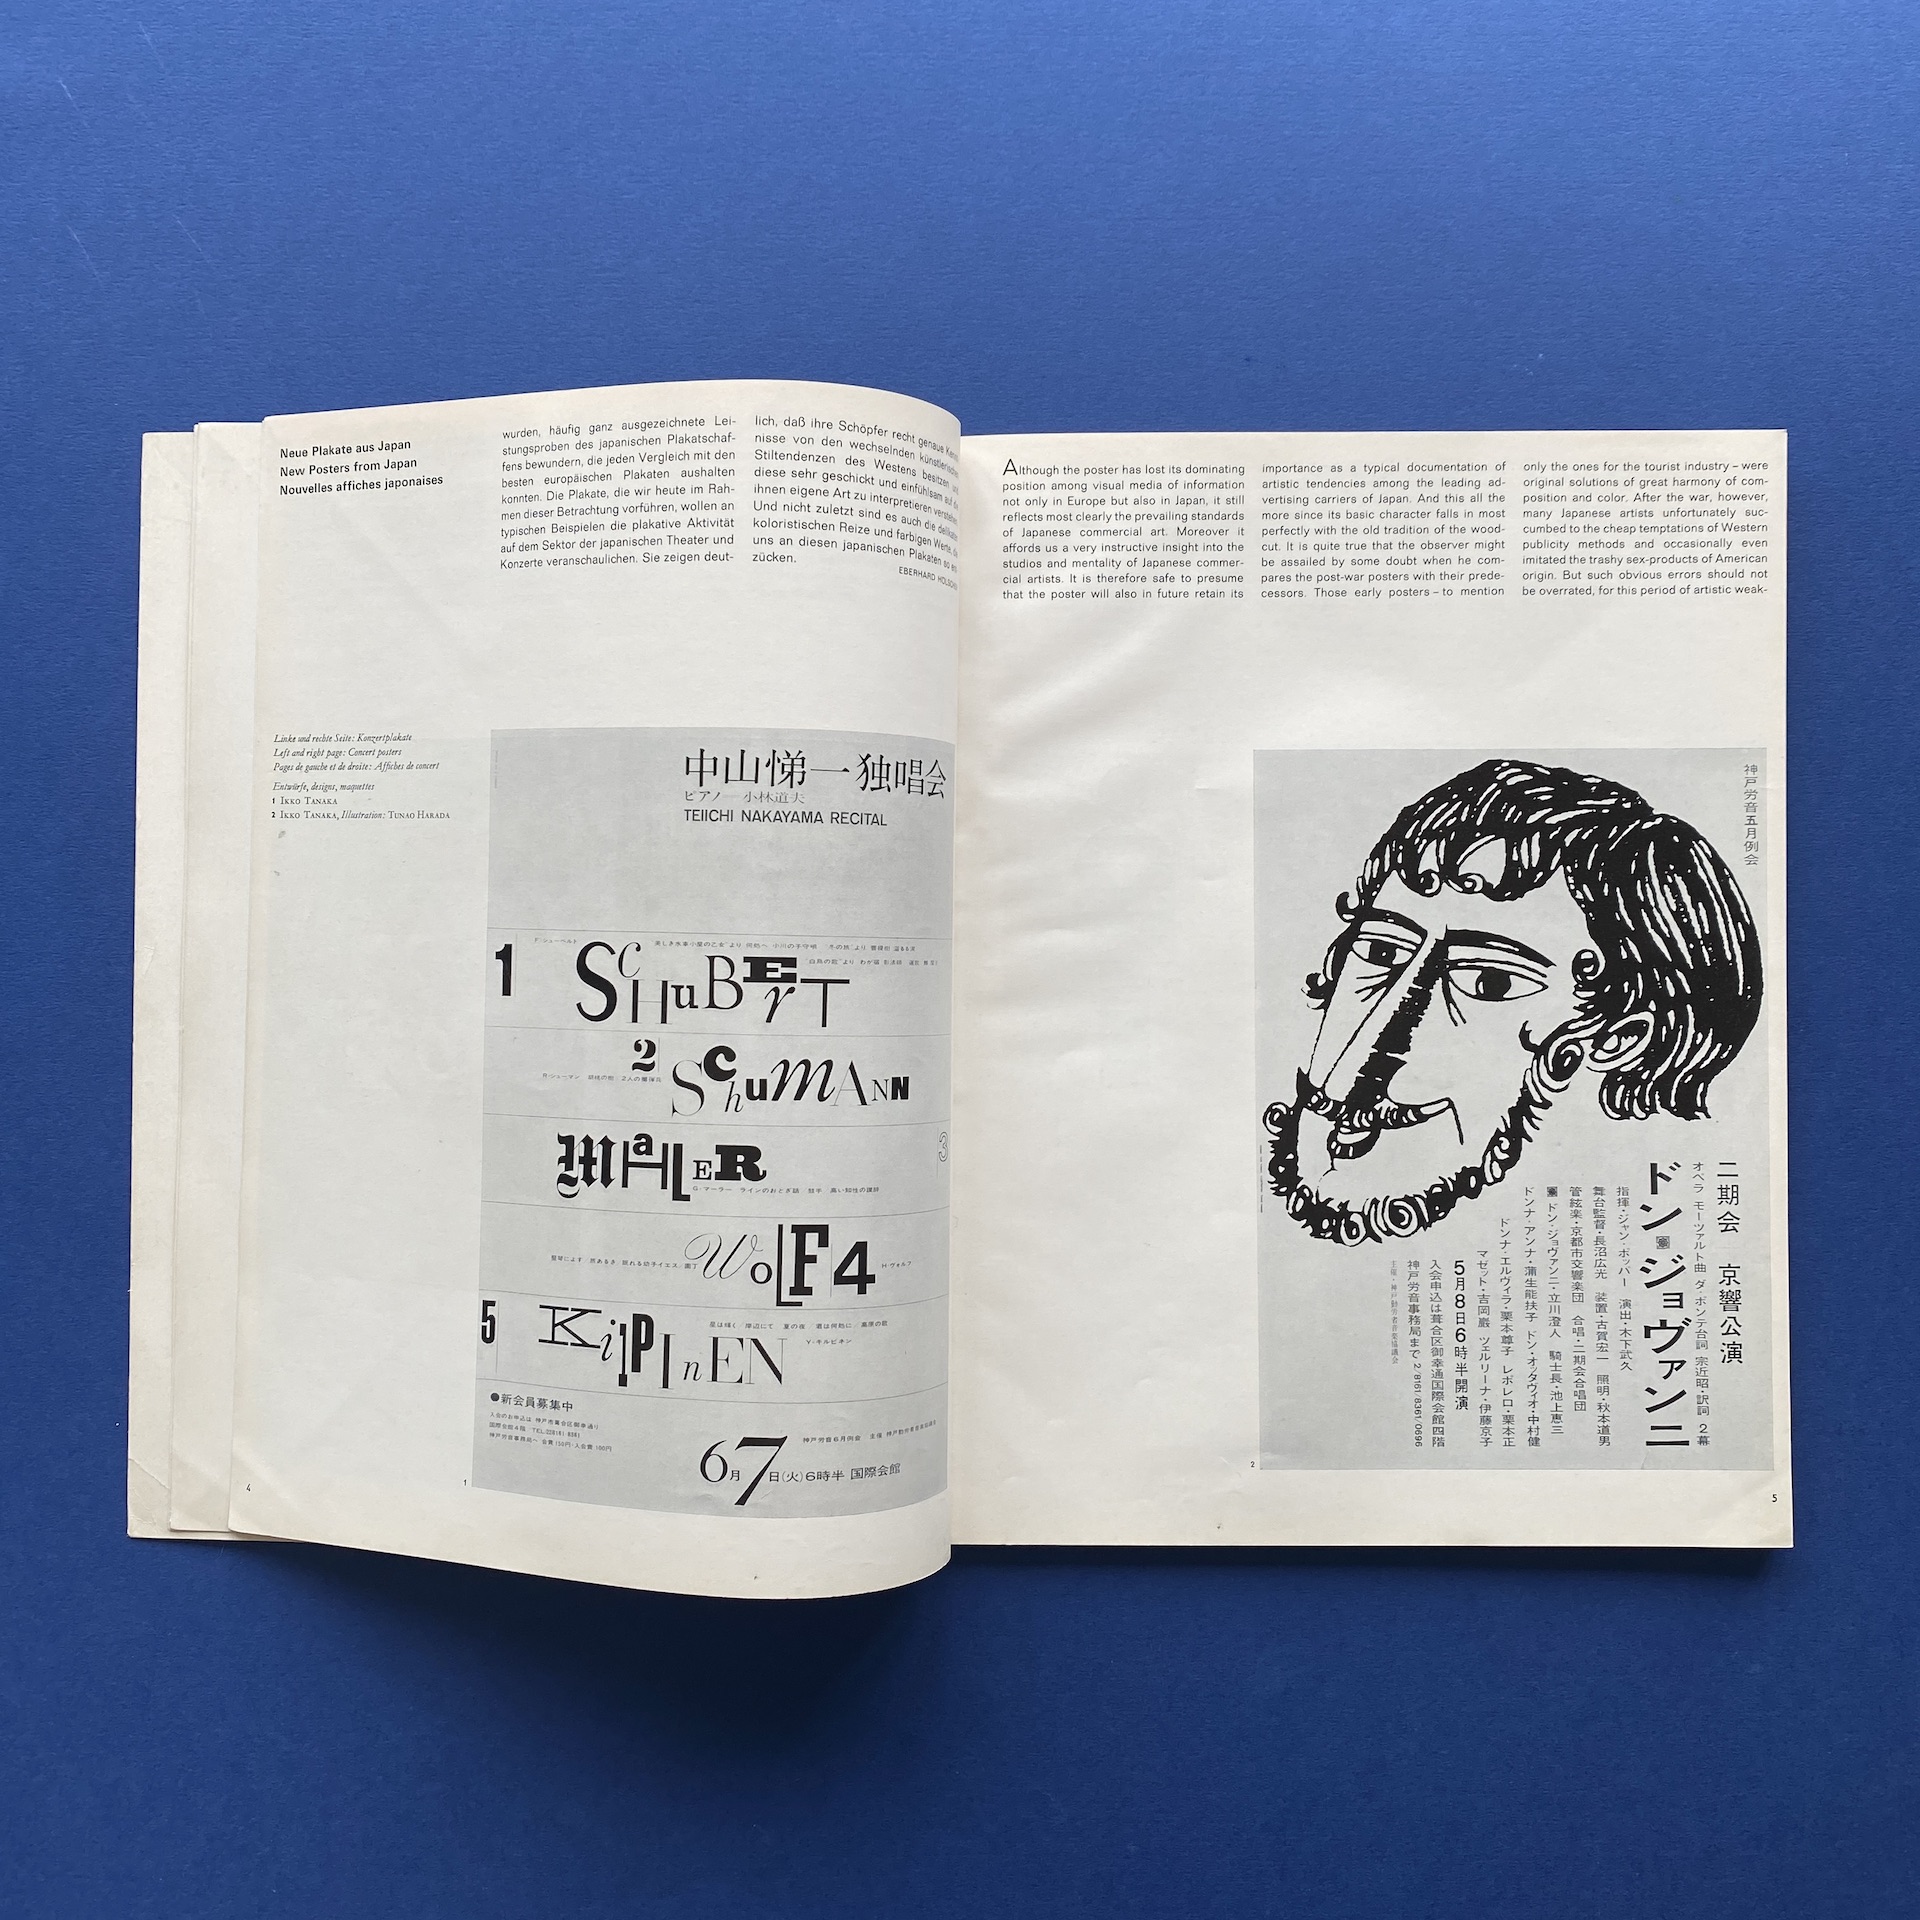 Neue Plakate aus Japan
New Posters from Japan
Nouvelles affiches japonaises
wurden, häufig ganz ausgezeichnete Lei-
stungsproben des japanischen Plakatschaf-
fens bewundern, die jeden Vergleich mit den
besten europäischen Plakaten aushalten
konnten. Die Plakate, die wir heute im Rah-
men dieser Betrachtung vorführen, wollen an
typischen Beispielen die plakative Aktivität
auf dem Sektor der japanischen Theater und
Konzerte veranschaulichen. Sie zeigen deut-
lich, daß ihre Schöpfer recht genaue
nisse von den wechselnden künstlerischen
Stiltendenzen des Westens besitzen
diese sehr geschickt und einfühlsam auf
ihnen eigene Art zu interpretieren verstehen.
Und nicht zuletzt sind es auch die delikaten
koloristischen Reize und farbigen Werte, die
uns an diesen japanischen Plakaten so
zücken.
EBERHARD
Linke und rechte Seite: Konzertplakate
Left and right page: Concert posters
Pages de gauche et de droite: Affiches de concert
Entwürfe, designs, maquettes
1 IKKO TANAKA
2 IKKO TANAKA, Illustration: TUNAO HARADA
中山悌一独唱会
ピアノ 小林道夫
TEIICHI NAKAYAMA RECITAL
1 SCHuBErT
F・シューベルト
2 SchumANN
R・シューマン
MaHLER 3
G・マーラー ラインのおとぎ話 鼓手 高い知性の讃辞
WoLF 4
H・ヴォルフ
5 KilPInEN
Y・キルピネン
●新会員募集中
国際会館4階
6月7日(火)6時半 国際会館
神戸労音6月例会 主催
4
1
Although the poster has lost its dominating
position among visual media of information
not only in Europe but also in Japan, it still
reflects most clearly the prevailing standards
of Japanese commercial art. Moreover it
affords us a very instructive insight into the
studios and mentality of Japanese commer-
cial artists. It is therefore safe to presume
that the poster will also in future retain its
importance as a typical documentation of
artistic tendencies among the leading ad-
vertising carriers of Japan. And this all the
more since its basic character falls in most
perfectly with the old tradition of the wood-
cut. It is quite true that the observer might
be assailed by some doubt when he com-
pares the post-war posters with their prede-
cessors. Those early posters – to mention
only the ones for the tourist industry – were
original solutions of great harmony of com-
position and color. After the war, however,
many Japanese artists unfortunately suc-
cumbed to the cheap temptations of Western
publicity methods and occasionally even
imitated the trashy sex-products of American
origin. But such obvious errors should not
be overrated, for this period of artistic weak-
神戸労音五月例会
二期会 京響公演
オペラ モーツァルト曲 ダ・ポンテ台詞 宗近昭・訳詞 2幕
ドン・ジョヴァンニ
指揮・ジャン・ポッパー 演出・木下武久
舞台監督・長沼広光 装置・古賀宏一 照明・秋本道男
管絃楽・京都市交響楽団 合唱・二期会合唱団
ドン・ジョヴァンニ・立川澄人 騎士長・池上恵三
ドンナ・アンナ・蒲生能扶子 ドン・オッタヴィオ・中村健
ドンナ・エルヴィラ・栗本尊子 レポレロ・栗本正
マゼット・吉岡巌 ツェルリーナ・伊藤京子
5月8日6時半開演
入会申込は葺合区御幸通国際会館四階
神戸労音事務局まで 2/8161/8361/0696
主催・神戸勤労者音楽協議会
2
5